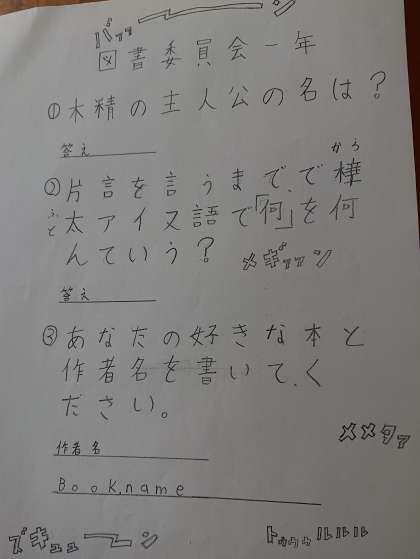 バァァーン
図書委員会一年
①木精の主人公の名は?
答え
②片言を言うまで、で樺
から
太アイヌ語で「何」を何
ふと
んていう?
メギァァン
答え
③あなたの好きな本と
作者名を書いて、く
ださい。
メメタァ
作者名
Book,name
ズギュュューン
トゥゥゥルルルル